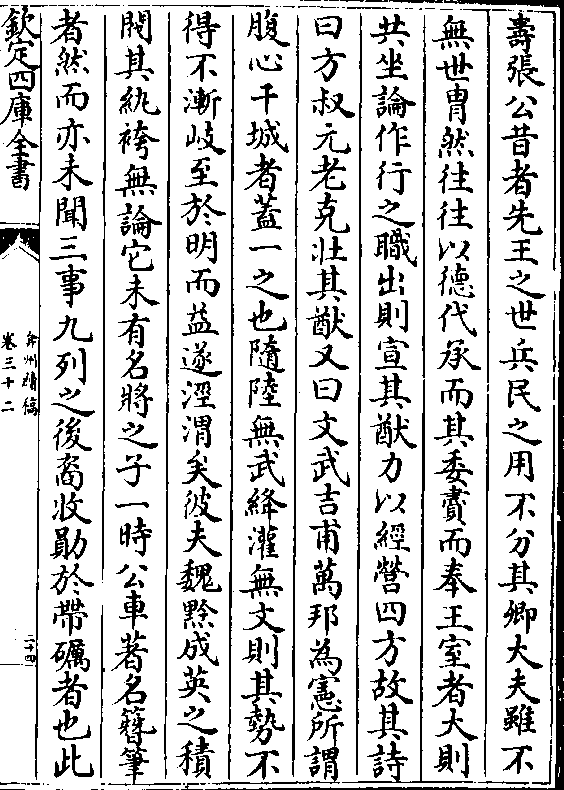 壽張公昔者先王之世兵民之用不分其卿大夫雖不
無世胄然往往以德代承而其委賮而奉王室者大則
共坐論作行之職出則宣其猷力以經營四方故其詩
曰方叔元老克壯其猷又曰文武吉甫萬邦為憲所謂
腹心干城者蓋一之也隨陸無武絳灌無文則其勢不
得不漸岐至於明而益遂涇渭矣彼夫魏黔成英之積
閥其紈袴無論它未有名將之子一時公車著名簪筆
者然而亦未聞三事九列之後裔收勛於帶礪者也此
欽定四庫全書
弇州續稿
卷三十二
二十四